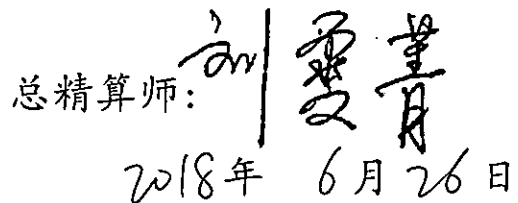 总精算师：刘
2018年 6月26日